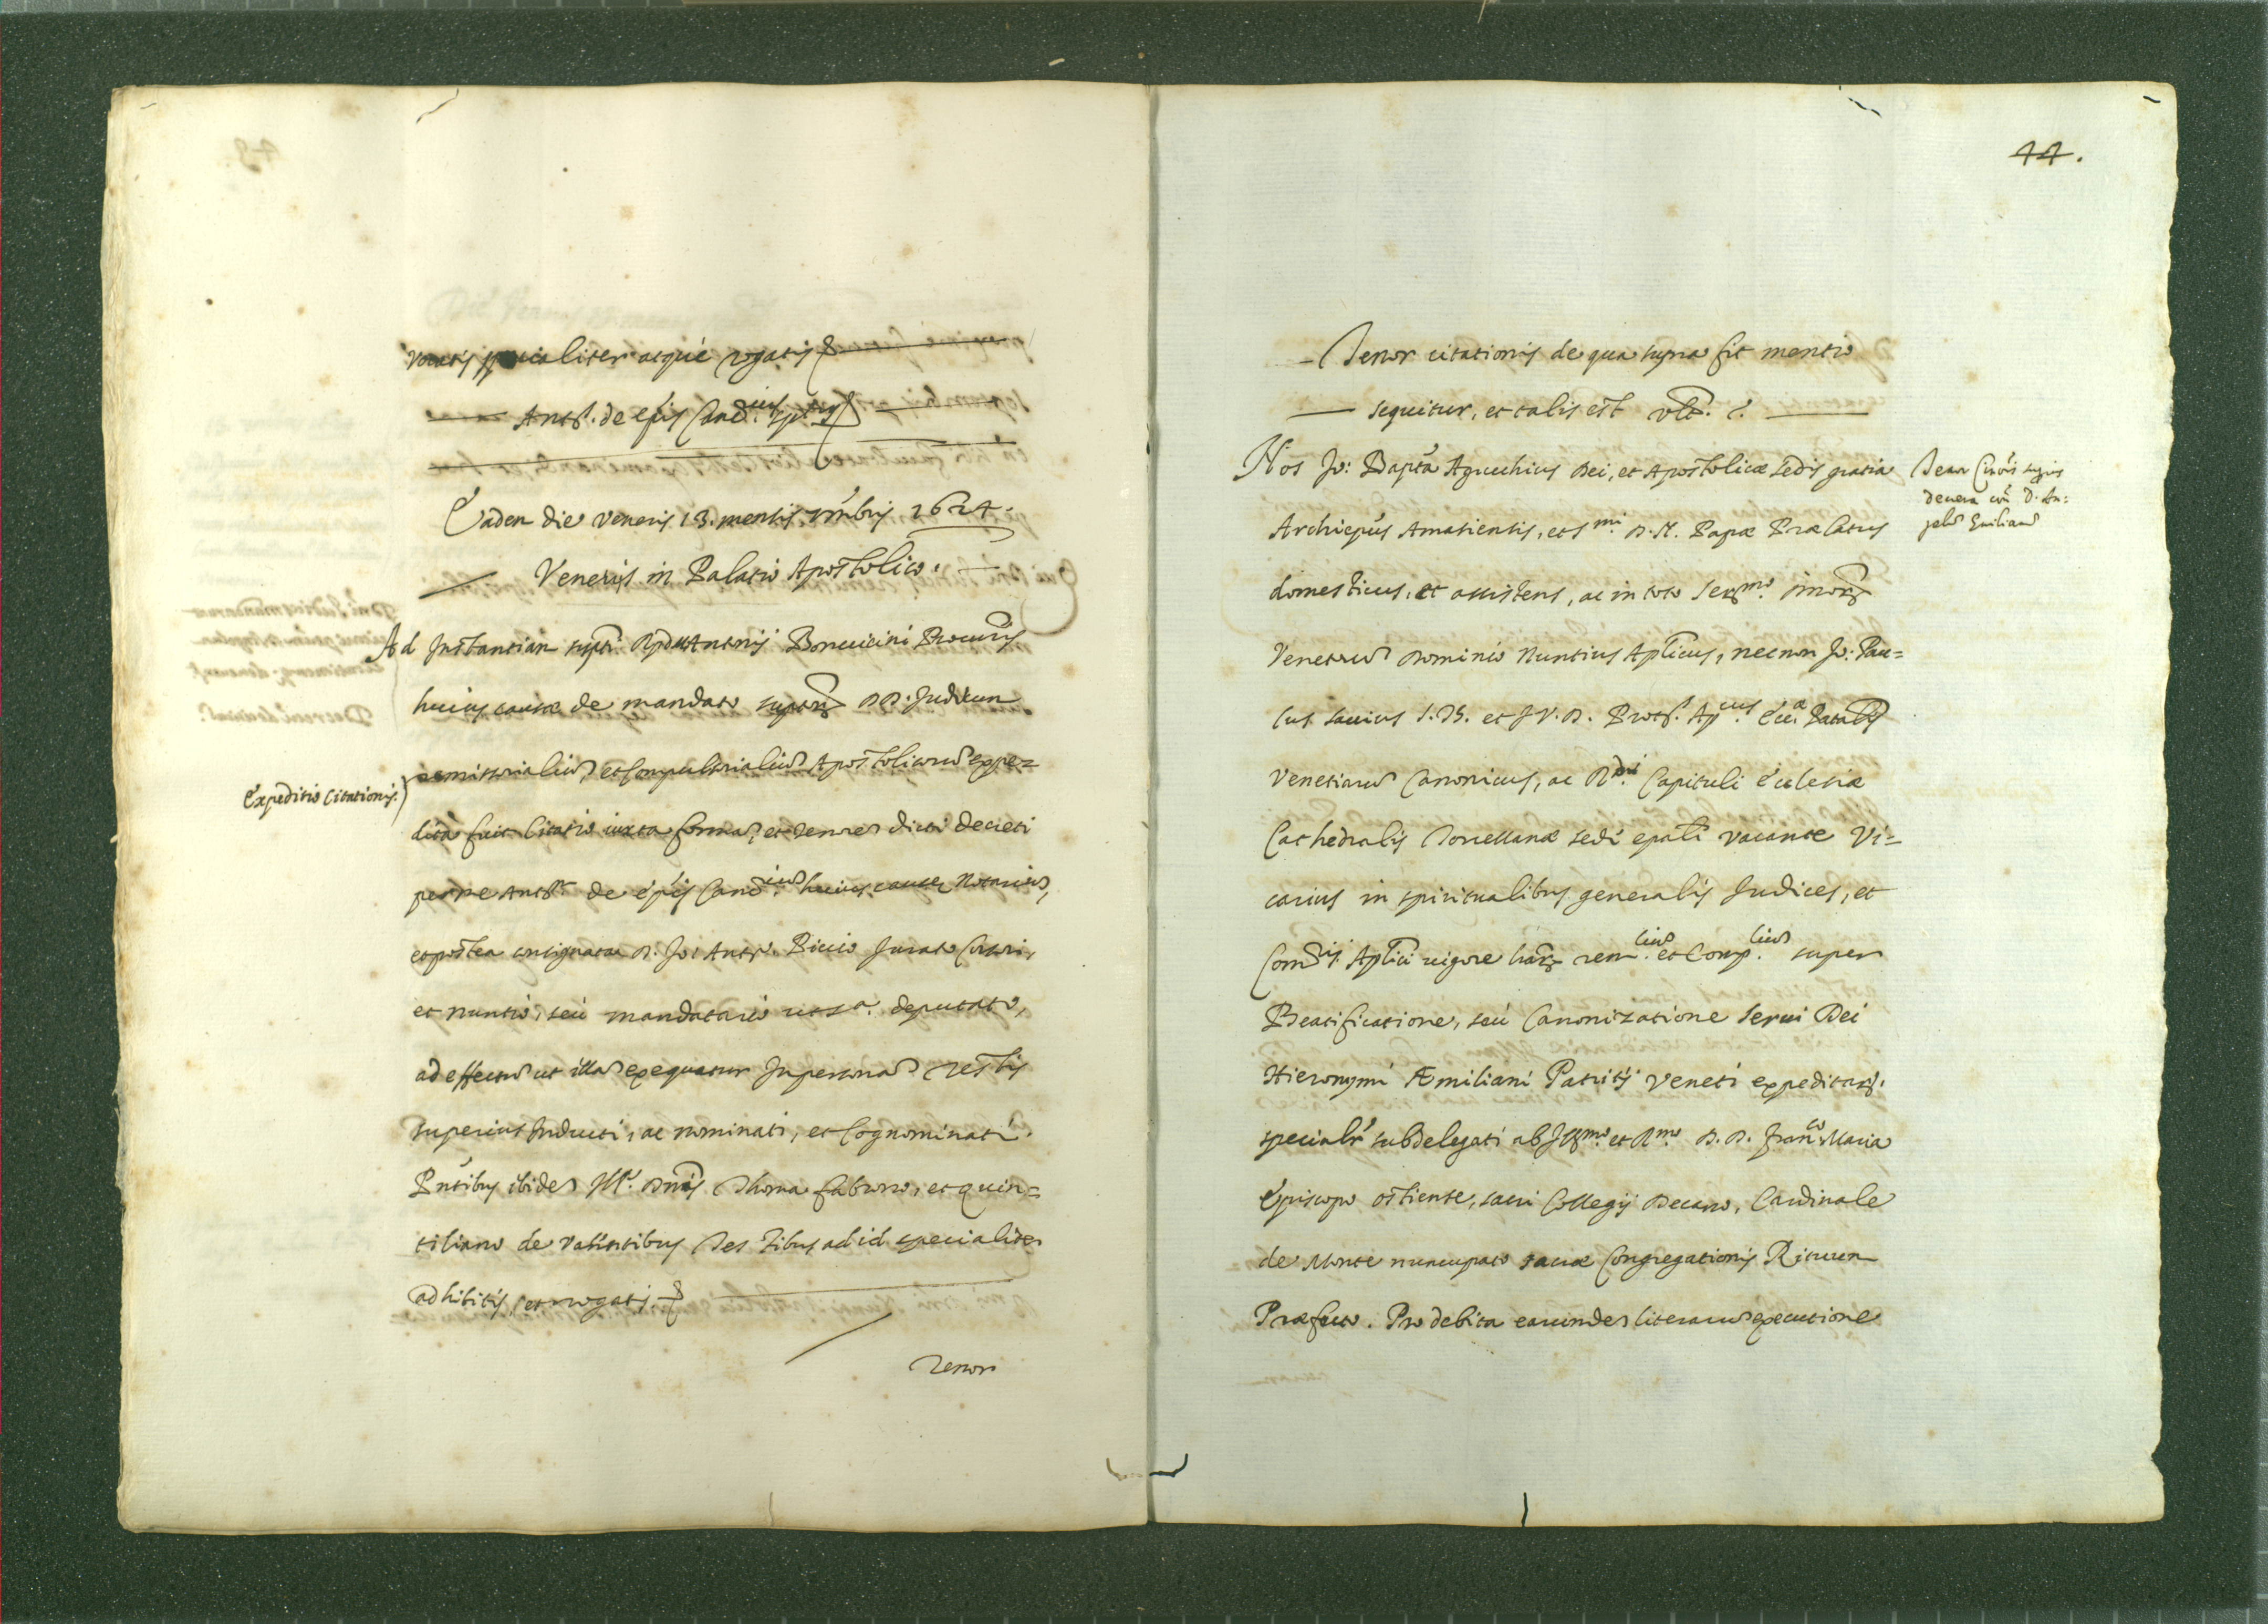 vocatis specialiter atque rogatis
Ant.s de ep̃is Canc.ius
Eadem die Veneris 13. mensis Xmbris 1624.
Venetijs in Palatio Apostolico.
Ad Instantiam supti Rpdi Antonij Bonuicini Procuris
huius causæ de mandato suptor DD. Judicum
remissorialium, et Compulsorialium Apostolicorum expe=
Expeditio Citationis.
dita fuit Citatio iuxta formã, et tenorem dicti decreti
per me Ant.m de ep̃is Canc.ium huius causæ Notarium,
et postea consignata D. Jo: Ant.o Biccio Jurato Cursori,
et nuntio, seù mandatario ut s.a deputato,
ad effectum ut illam exequatur In personam Testis
superius Inducti, ac nominati, et Cognominati.
Pñtibus ibidem Ill. Dnis Thoma fabuno, et quin=
tiliano de Testibus ad id specialiter
adhibitis, et rogatis.
Tenor
44.
Tenor citationis de qua supra fit mentio
sequitur, et talis est vlt.
Nos Jo: Bapta Agucchius Dei, et Apostolicæ sedis gratia
Archiepũs Amasiensis, et S.mi D. N. Papæ Prælatus
domesticus, et assistens, ac in toto Ser.mo
Venetorum Dominio Nuntius Aplicus, necnon Jo: Pau=
lus Sauius S. Th. et J. V. D. Prot. Ap.cus Ecc.æ Patalis
Venetiarum Canonicus, ac R.di Capituli Ecclesiæ
Cathedralis Torcellanæ sede epali vacante Vi=
carius in spiritualibus generalis Judices, et
Com.rij Aplici uigore lrãr rem.lium et Comp.lium super
Beatificatione, seù Canonizatione Serui Dei
Hieronymi Æmiliani Patritij Veneti expeditar.
specialr subdelegati ab Ill.mo et R.mo D. D. Fran.co Maria
Episcopo ostiense, sacri Collegij Decano, Cardinale
de Monte nuncupato sacræ Congregationis Rituum
Præfecto. Pro debita earumdem literarum executione
Tenor Citõis superius
D. An=
gelum Emilianum